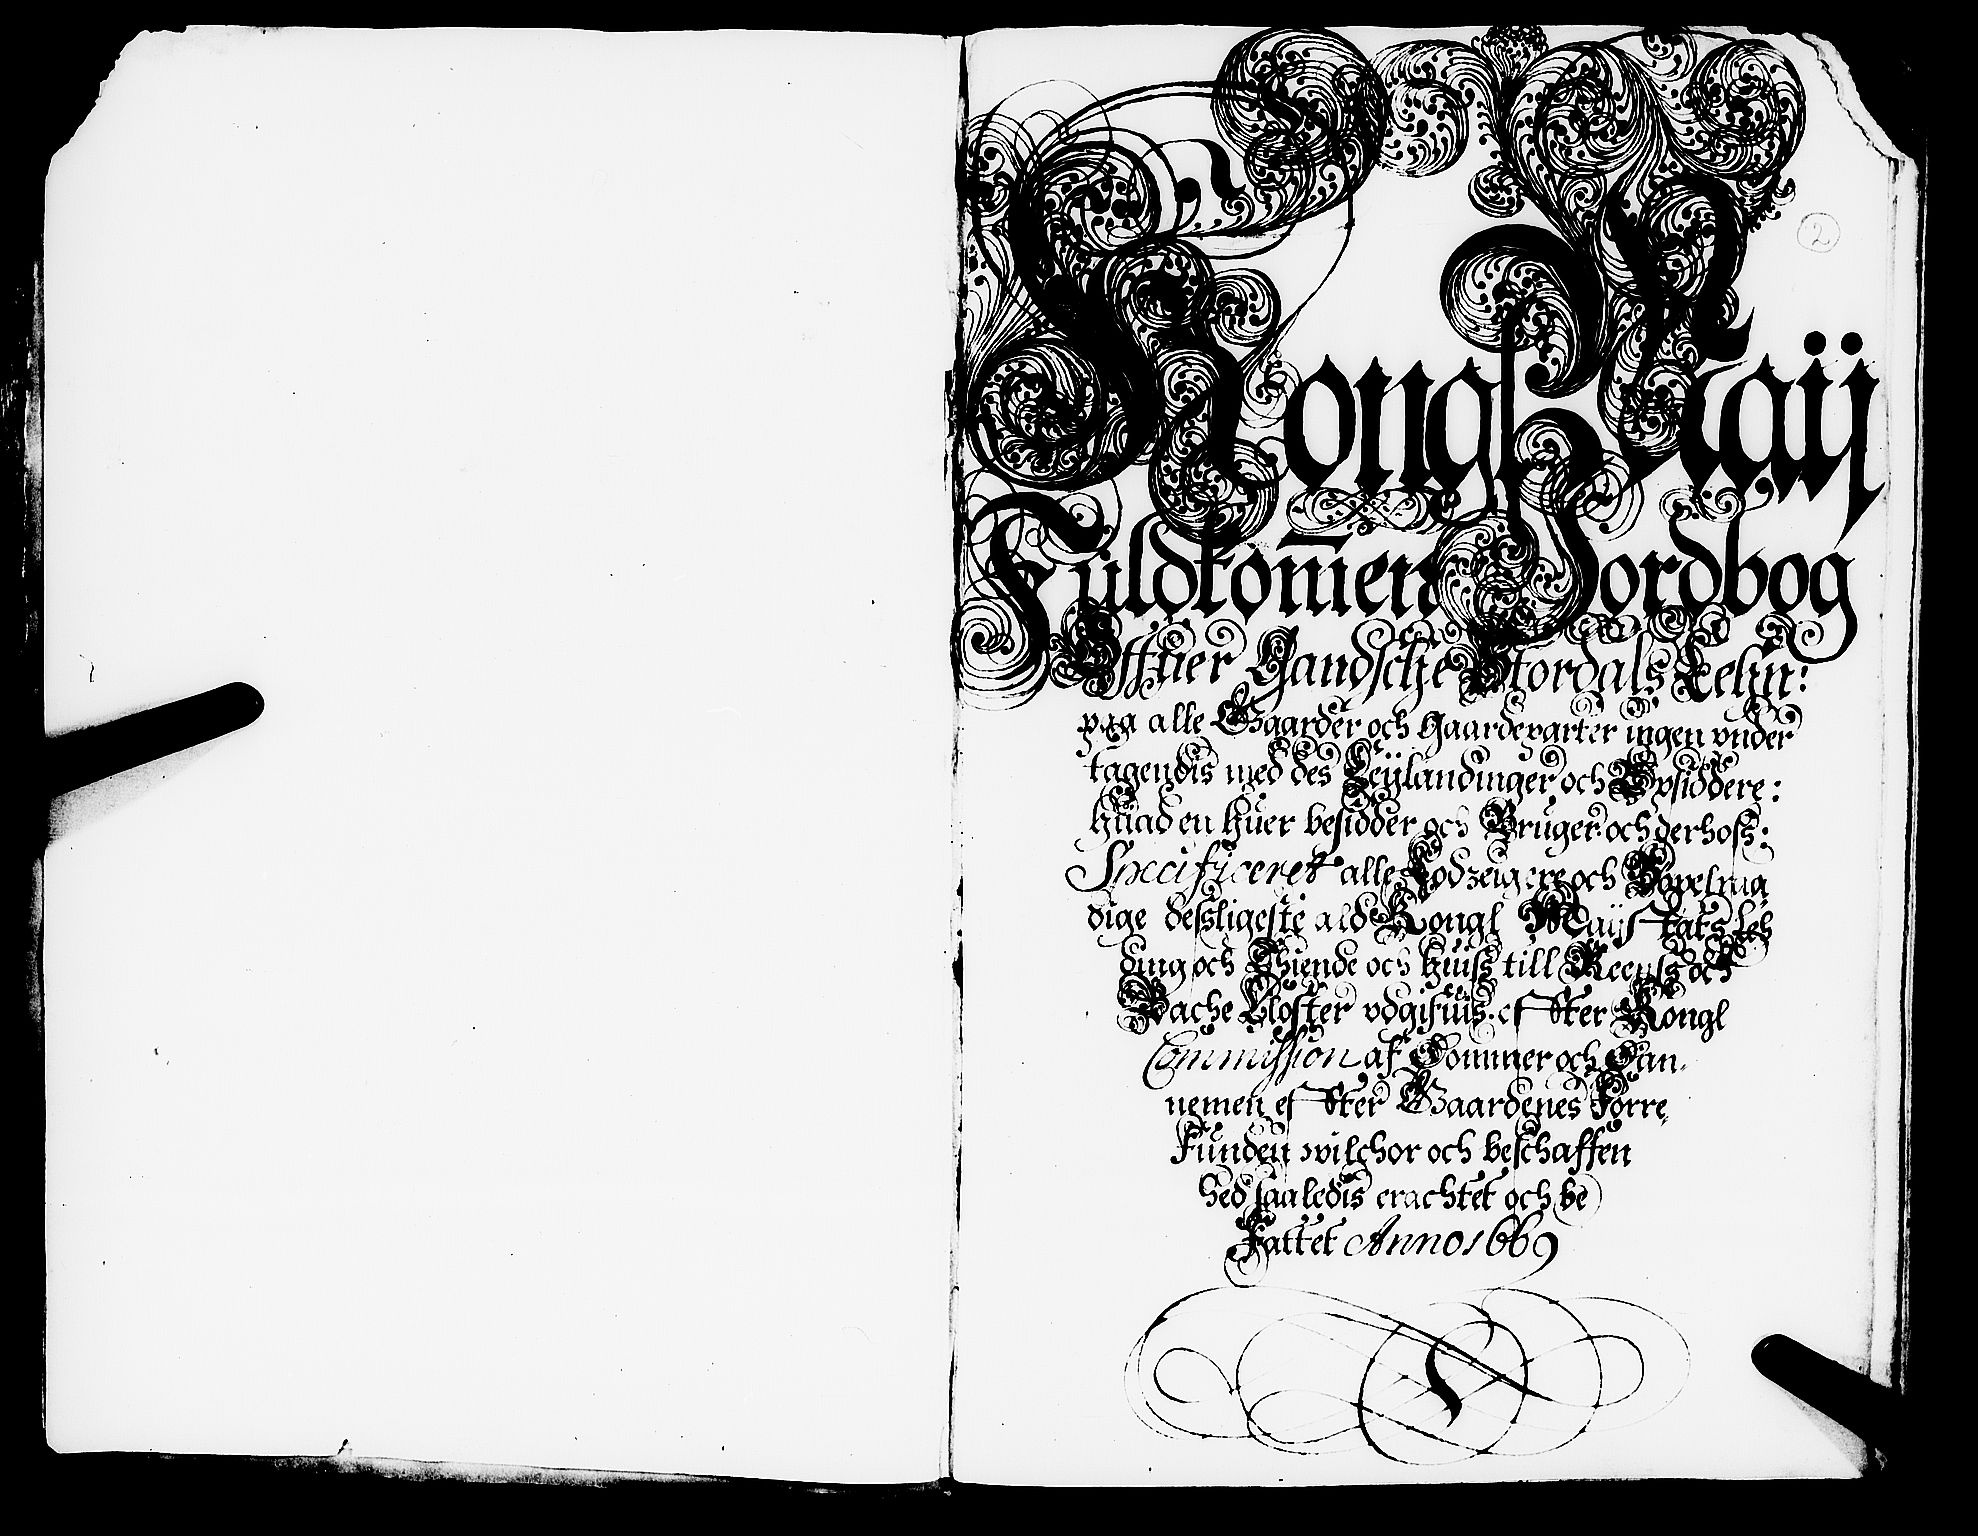 2
Kongl: Maij
Fuldkom̄en Jordbog
Offuer Gandsche Stordals Lehn:
paa alle Gaarder och gaardeparter ingen vnder
tagendis med des Leÿlandinger och Opsiddere:
huad en huer besidder och Bruger och derhoss:
Specificeret alle Lodzeigere och
dige dessligeste ald Kongl Maijstats Leh
ding och Thiende och huiss till Reens och
Bache Closter vdgifuis effter Kongl
Commission af Dommer och Dan-
nemen effter Gaardenes Forre
Funden wilchor och beschaffen
hed saaledis erachtet och be
Fattet Anno 1669